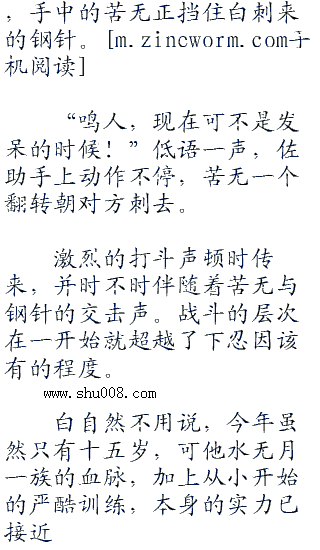 ，手中的苦无正挡住白刺来
的钢针。[m.zincworm.com手
机阅读]
“鸣人，现在可不是发
呆的时候！”低语一声，佐
助手上动作不停，苦无一个
翻转朝对方刺去。
激烈的打斗声顿时传
来，并时不时伴随着苦无与
钢针的交击声。战斗的层次
在一开始就超越了下忍因该
有的程度。
www.shu008.com
白自然不用说，今年虽
然只有十五岁，可他水无月
一族的血脉，加上从小开始
的严酷训练，本身的实力已
接近